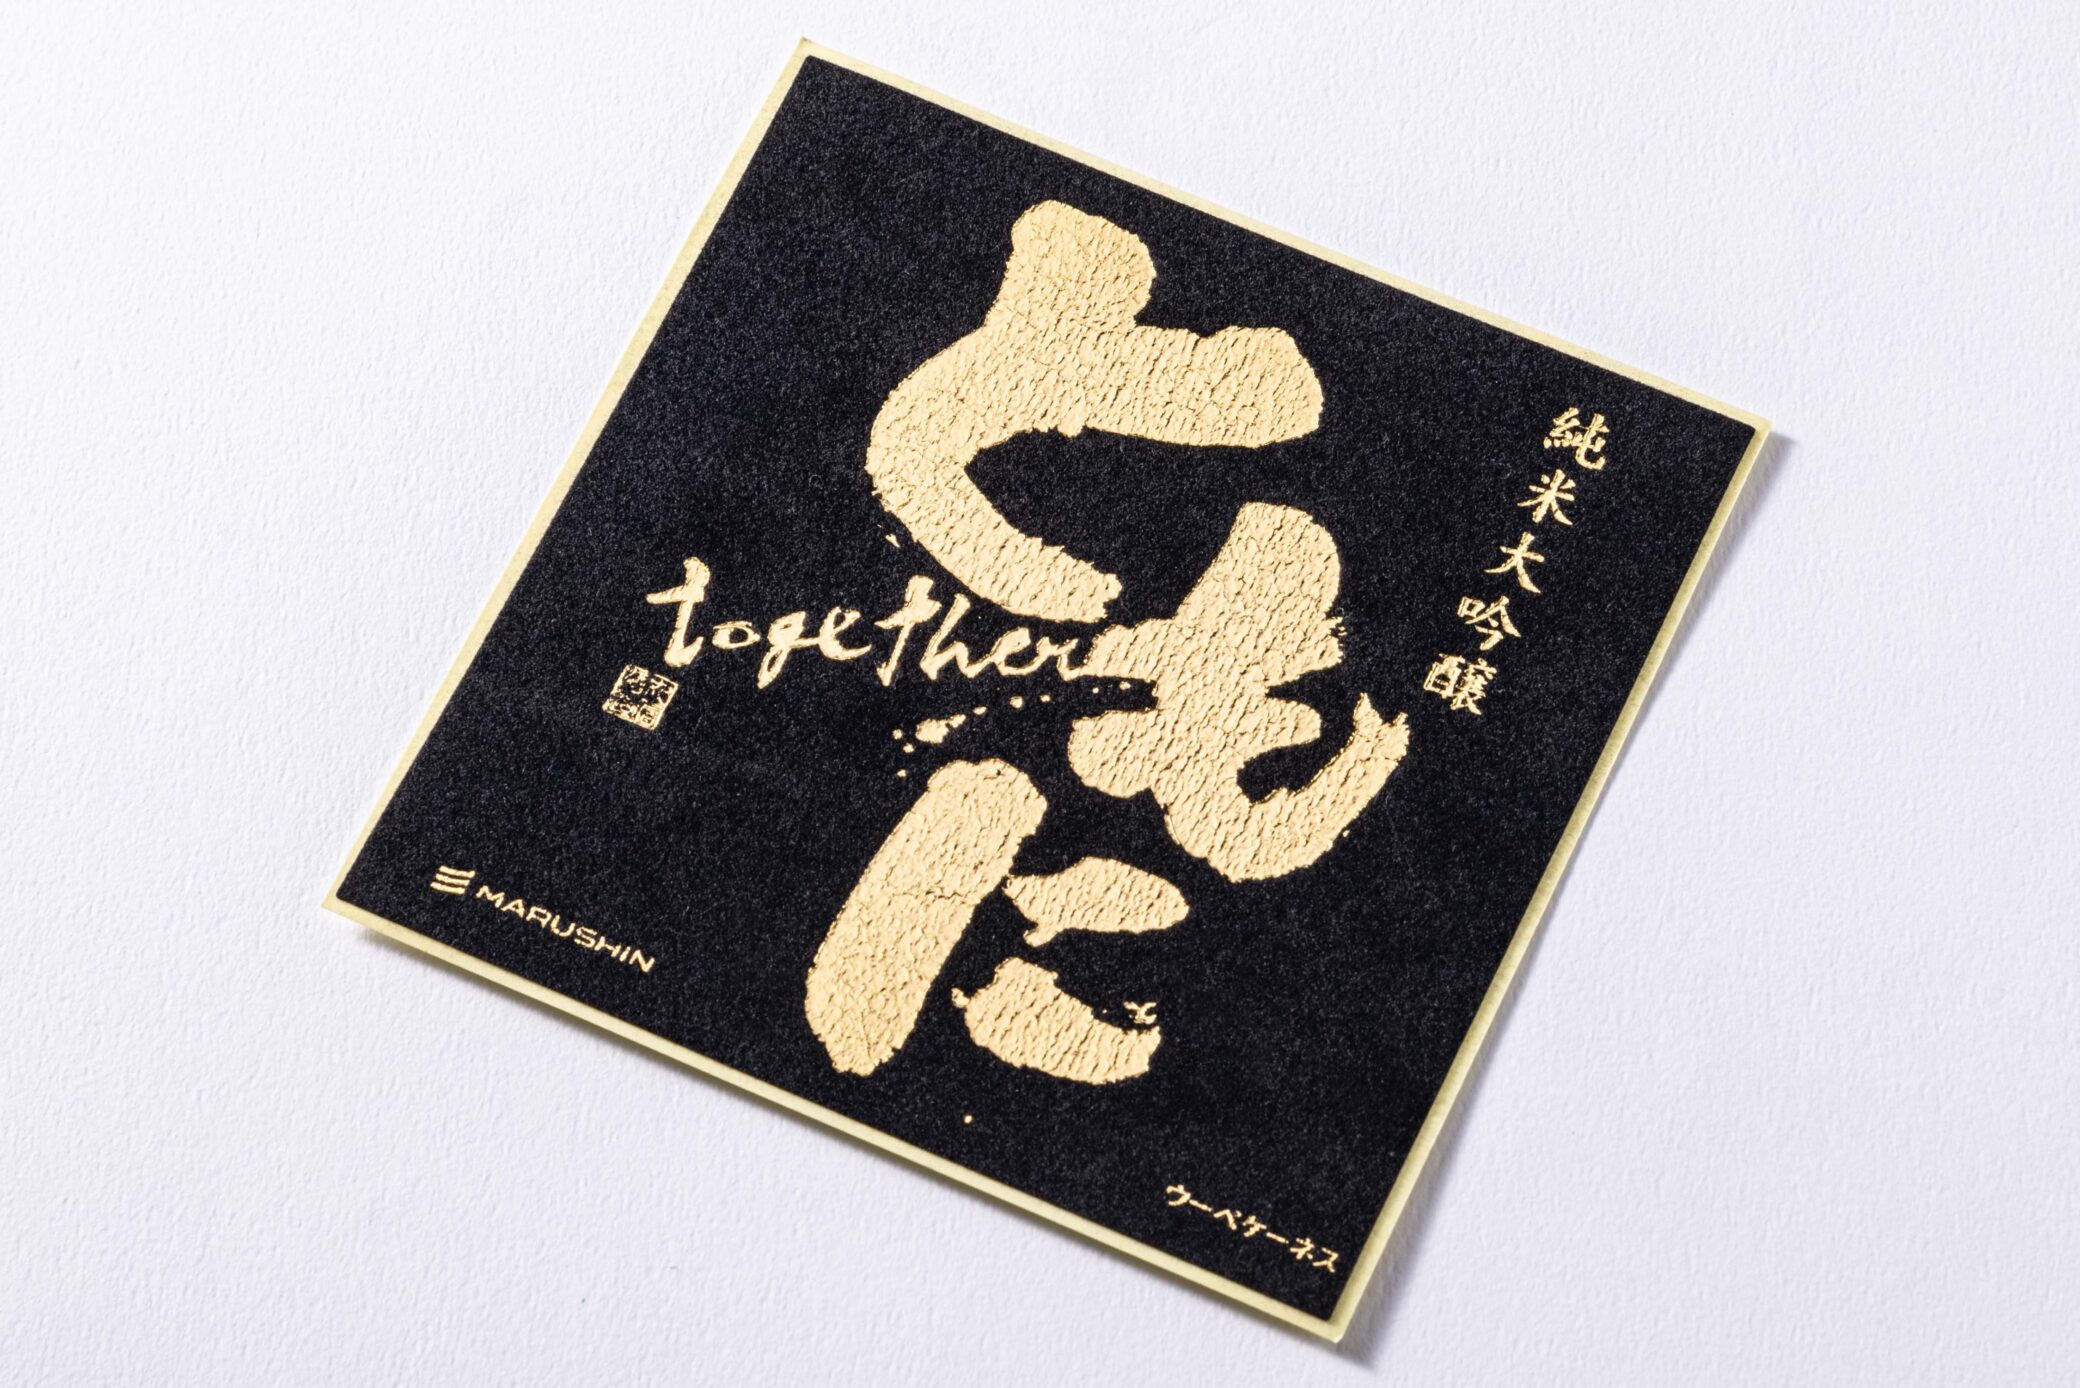 純米大吟醸
ともに
together
MARUSHIN
ウーペケーネス